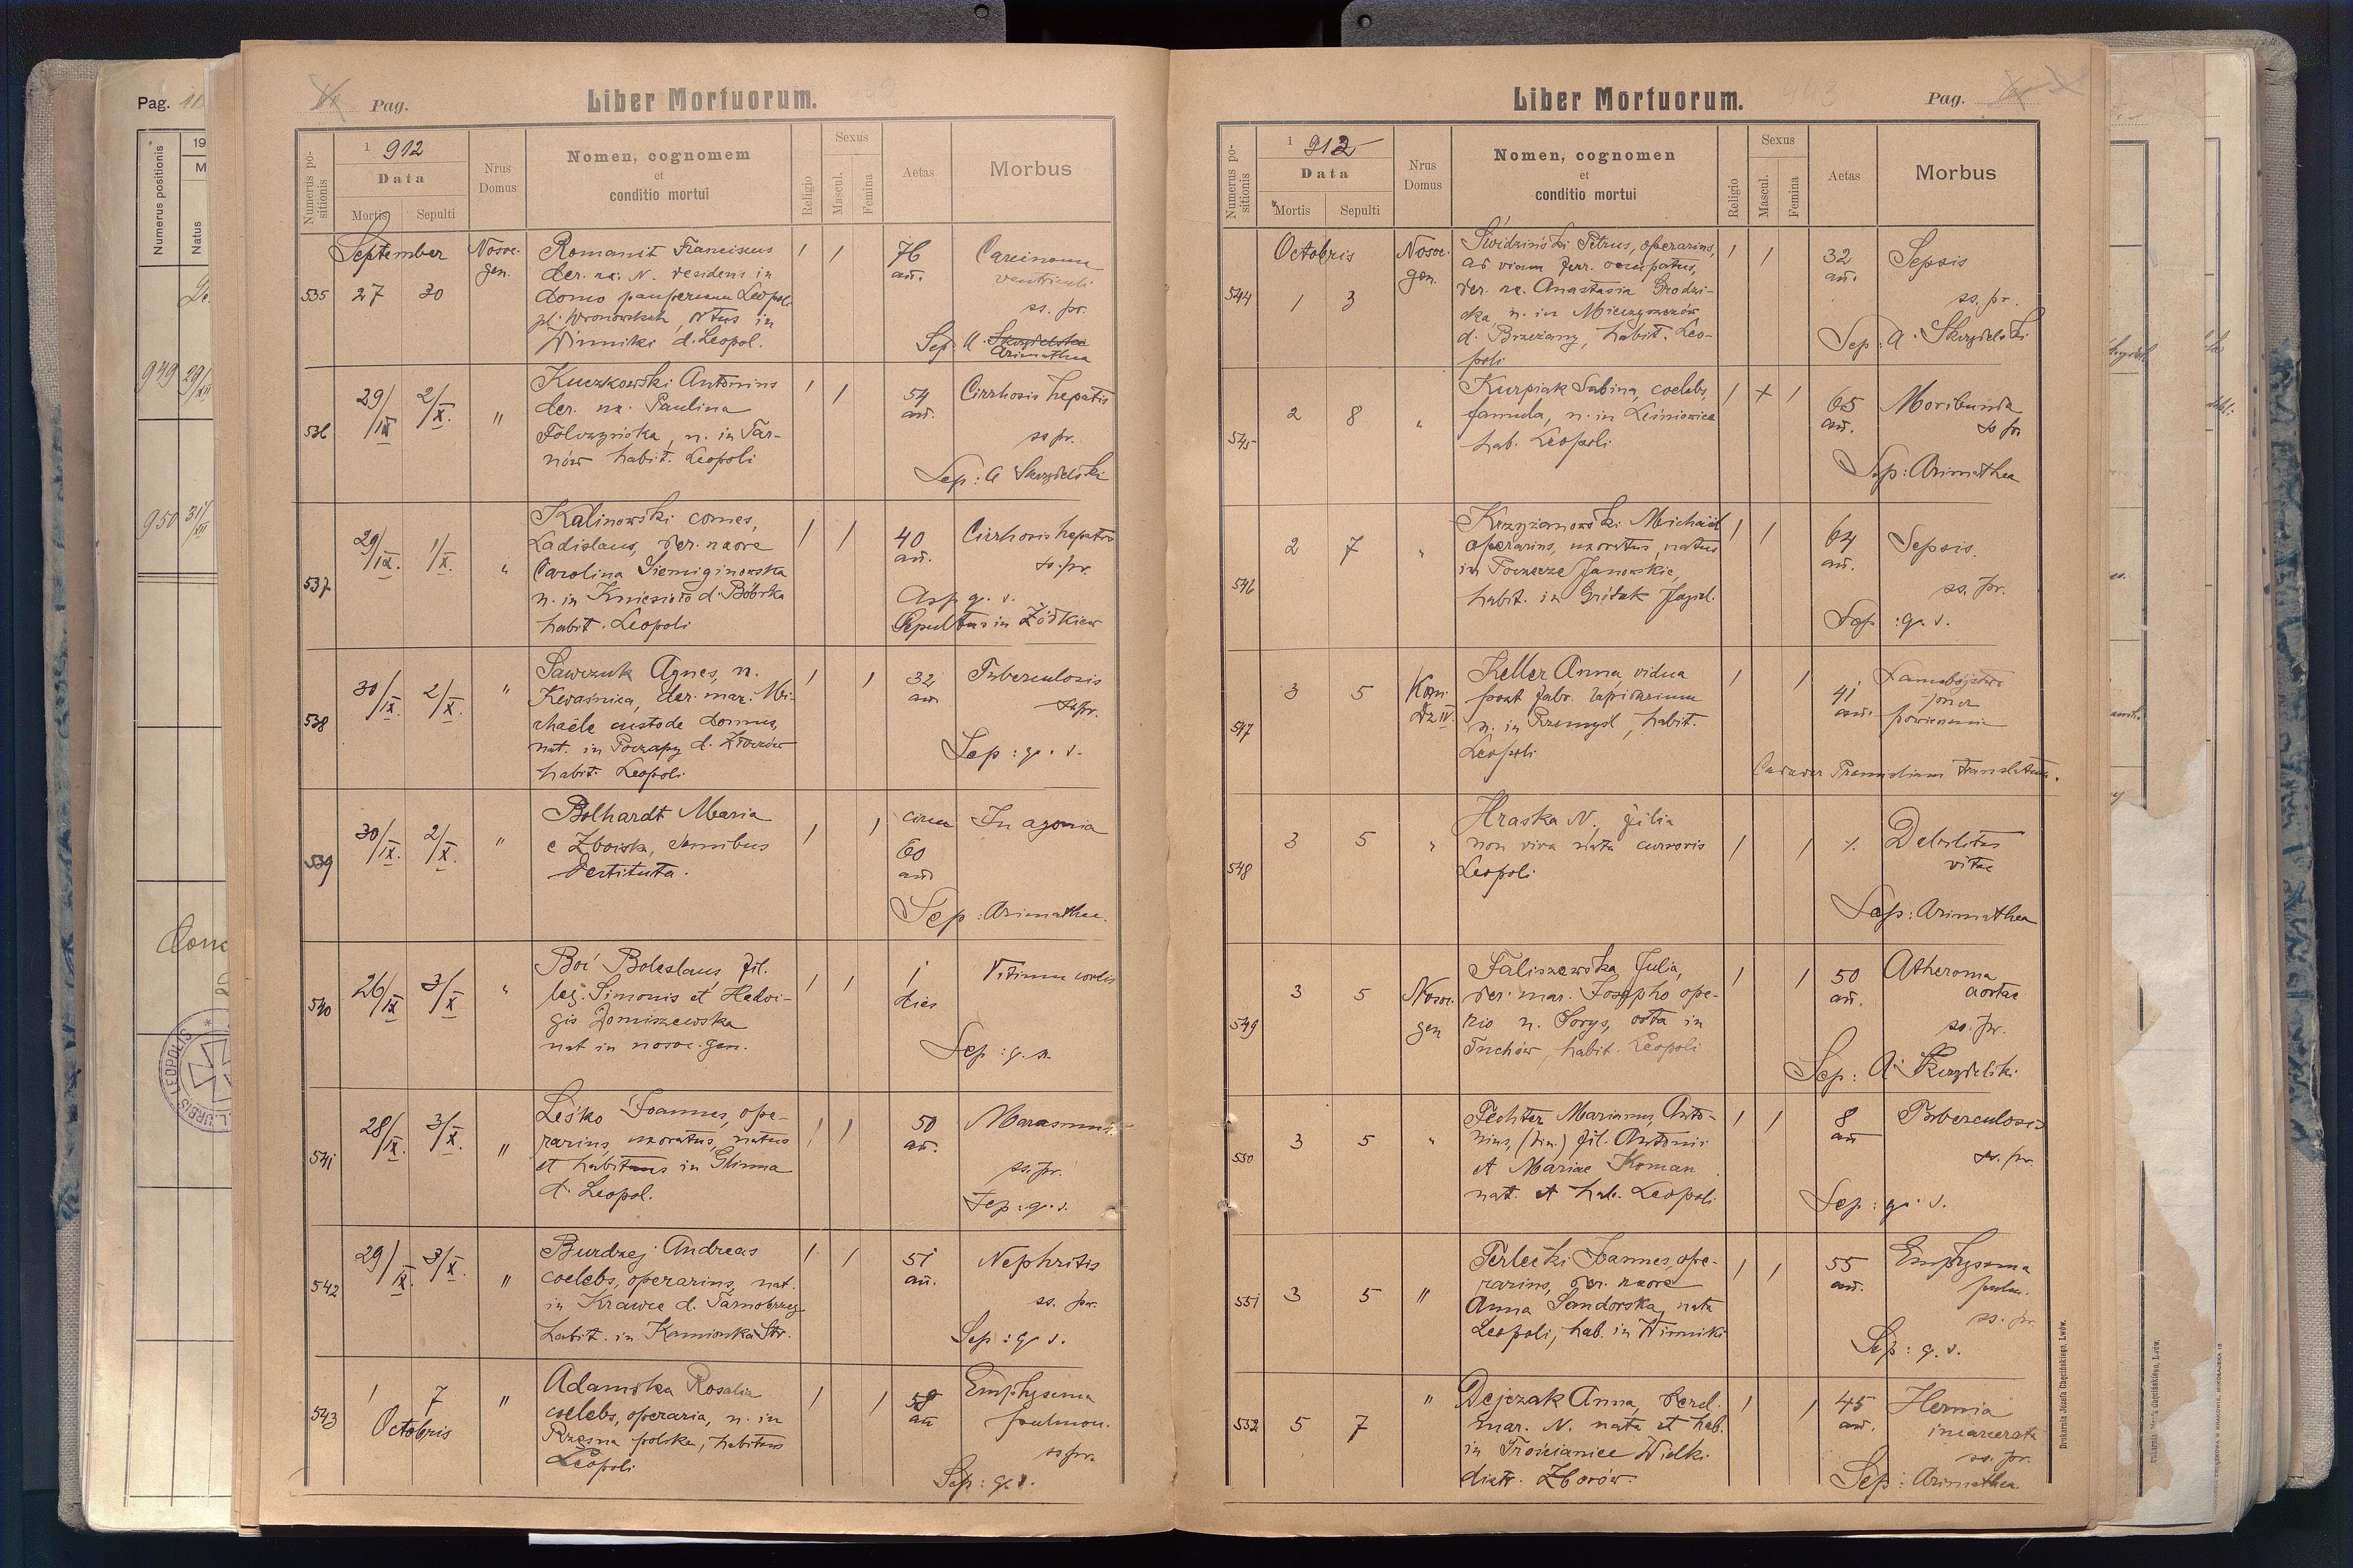 Pag.
Numerus positionis
19
M
Natus
949
29/XII
950
31/XII
LEOPOLIS
URBIS
Pag.
Liber Mortuorum.
Numerus positionis
1912
Data
Mortis
Sepulti
Nrus Domus
Nomen, cognomem
et
conditio mortui
Religio
Sexus
Mascul.
Femina
Aetas
Morbus
September
535
27
30
Nosoc. gen.
Romanit Franciscus
der. ux. N. residens in
domo pauperum Leopol.
ortus in
Winniki d. Leopol.
1
1
76
an.
Carcinoma
ventriculi
ss. pr.
Sep. A. Skrzydelski
Arimathea
536
29/IX
2/X.
"
Kuczkowski Antonius
der. ux. Paulina
n. in Tar-
nów habit. Leopoli
1
1
54
an.
Cirrhosis hepatis
ss pr.
Sep: A Skrzydelski
537
29/IX.
1/X.
"
Kalinowski comes,
Ladislaus, der. uxore
Carolina Siemiginowska
n. in d. Bóbrka
habit. Leopoli
1
1
40
an.
Cirrhosis hepatis
ss. pr.
Asp. g. v.
Sepultus in Żółkiew
538
30/IX.
2/X.
"
Sawczuk Agnes, n.
Kwaśnica, der. mar. Mi-
chaële custode domus,
nat. in Poczapy d. Złoczów
habit. Leopoli
1
1
32
an
Tuberculosis
ss pr.
Sep: g. v.
539
30/IX.
2/X.
"
Bolhardt Maria
e Zboiska, sensibus
destituta.
1
1
circa
60
an
In agonia
Sep: Arimathea.
540
26/IX
3/X
"
Boć Boleslaus fil.
leg. Simonis et Hedvi-
gis Domiszewska
nat in nosoc. gen.
1
1
1
dies
Vitium cordis
Sep: g. n.
541
28/IX.
3/X.
"
Leśko Joannes, ope-
rarius, uxoratus, natus
et habitans in Glinna
d. Leopol.
1
1
50
an.
Marasmus
ss. pr.
Sep: g. v.
542
29/IX.
3/X.
"
Burdzej Andreas
coelebs, operarius, nat.
in Krawce d. Tarnobrzeg
habit. in Kamionka Str.
1
1
51
an.
Nephritis
ss. pr.
Sep: g v.
543
1
7
Octobris
"
Adamska Rosalia
coelebs, operaria, n. in
Rzęsna polska, habitans
Leopoli
1
1
58
an
Emphysema
pulmon.
ss pr.
Sep: g. v.
Liber Mortuorum.
493
Pag.
Numerus positionis
1912
Data
Mortis
Sepulti
Nrus Domus
Nomen, cognomen
et
conditio mortui
Religio
Sexus
Mascul.
Femina
Aetas
Morbus
Octobris
544
1
3
Nosoc. gen.
Świdziński Petrus, operarius,
ad viam ferr. occupatus,
der. ux. Anastasia Grodzi-
cka, n. in
d. Brzeżany, habit. Leo-
poli
1
1
32
an.
Sepsis
ss. pr.
Sep: A. Skrzydelski
545
2
8
"
Kurpiak Sabina, coelebs,
famula, n. in Leśniowice
hab. Leopoli
1
+
1
65
an.
Moribunda
ss pr
Sep: Arimathea
546
2
7
"
Krzyżanowski Michaël
operarius, uxoratus, natus
in Janowskie,
habit. in Gródek Jagiel.
1
1
64
an.
Sepsis.
ss. pr.
Sep: g. v.
547
3
5
Kom.
Dz IV.
Keller Anna, vidua
post fabr. lapidarium
n. in Przemyśl, habit.
Leopoli
1
1
41
an.
Samobójstwo
przez
powieszenie
Cadaver Premisliam translatum.
548
3
5
"
Hraska N. filia
non viva nata cursoris
Leopoli
1
1
%
Debilitas
vitae
Sep: Arimathea
549
3
5
Nosoc.
gen
Faliszewska Julia,
der. mar. Josepho ope-
rio n. Sorys, orta in
Tuchów, habit. Leopoli
1
1
50
an.
Atheroma
aortae
ss. pr.
Sep: A. Skrzydelski
550
3
5
"
Pechter Marianus, Anto-
nius, (bin.) fil. Antonii
et Mariae Koman
nat. et hab. Leopoli
1
1
8
an
Tuberculosis
ss. pr.
Sep: g. v.
551
3
5
"
Terlecki Joannes, ope-
rarius, der. uxore
Anna Sandorska, nata
Leopoli, hab. in Winniki
1
1
55
an.
Emphysema
pulm.
ss. pr
Sep: g. v.
552
5
7
"
Dejczak Anna, derel.
mar. N. nata et hab.
in Trościaniec Wielki
distr. Zborów.
1
1
45
an.
Hernia
incarcerata
ss. pr.
Sep: Arimathea
Drukarnia Józefa Chęcińskiego, Lwów.